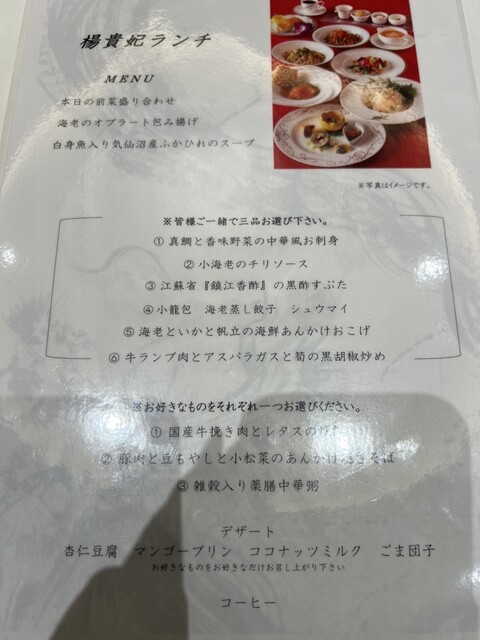 楊貴妃ランチ
MENU
本日の前菜盛り合わせ
海老のオブラート包み揚げ
白身魚入り気仙沼産ふかひれのスープ
※写真はイメージです。
※皆様ご一緒で三品お選び下さい。
① 真鯛と香味野菜の中華風お刺身
② 小海老のチリソース
③ 江蘇省『鎮江香酢』の黒酢すぶた
④ 小龍包 海老蒸し餃子 シュウマイ
⑤ 海老といかと帆立の海鮮あんかけおこげ
⑥ 牛ランプ肉とアスパラガスと筍の黒胡椒炒め
※お好きなものをそれぞれ一つお選びください。
① 国産牛挽き肉とレタスの
② 豚肉と豆もやしと小松菜のあんかけ焼きそば
③ 雑穀入り薬膳中華粥
デザート
杏仁豆腐 マンゴープリン ココナッツミルク ごま団子
お好きなものをお好きなだけお召し上がり下さい
コーヒー